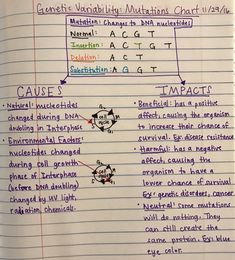 Genetic Variability: Mutations Chart 11/29/16
Mutation: Changes to DNA nucleotides
Normal: A C G T
Insertion: A C T G T
Deletion: A C T
Substitution: A G G T
CAUSES
• Natural: nucleotides
changed during DNA
doubling in Interphase
• Environmental Factors:
nucleotides changed
during cell growth
phase of Interphase
(before DNA doubling)
changed by UV light,
radiation chemicals.
cell cycle
cell cycle
IMPACTS
• Beneficial: has a positive
affect, causing the organism
to increase their chance of
survival. Ex: disease resistence
• Harmful: has a negative
affect, causing the
organism to have a
lower chance of survival
Ex: genetic disorders, cancer
• Neutral: some mutations
will do nothing. They
can still create the
same protein. Ex: blue
eye color.